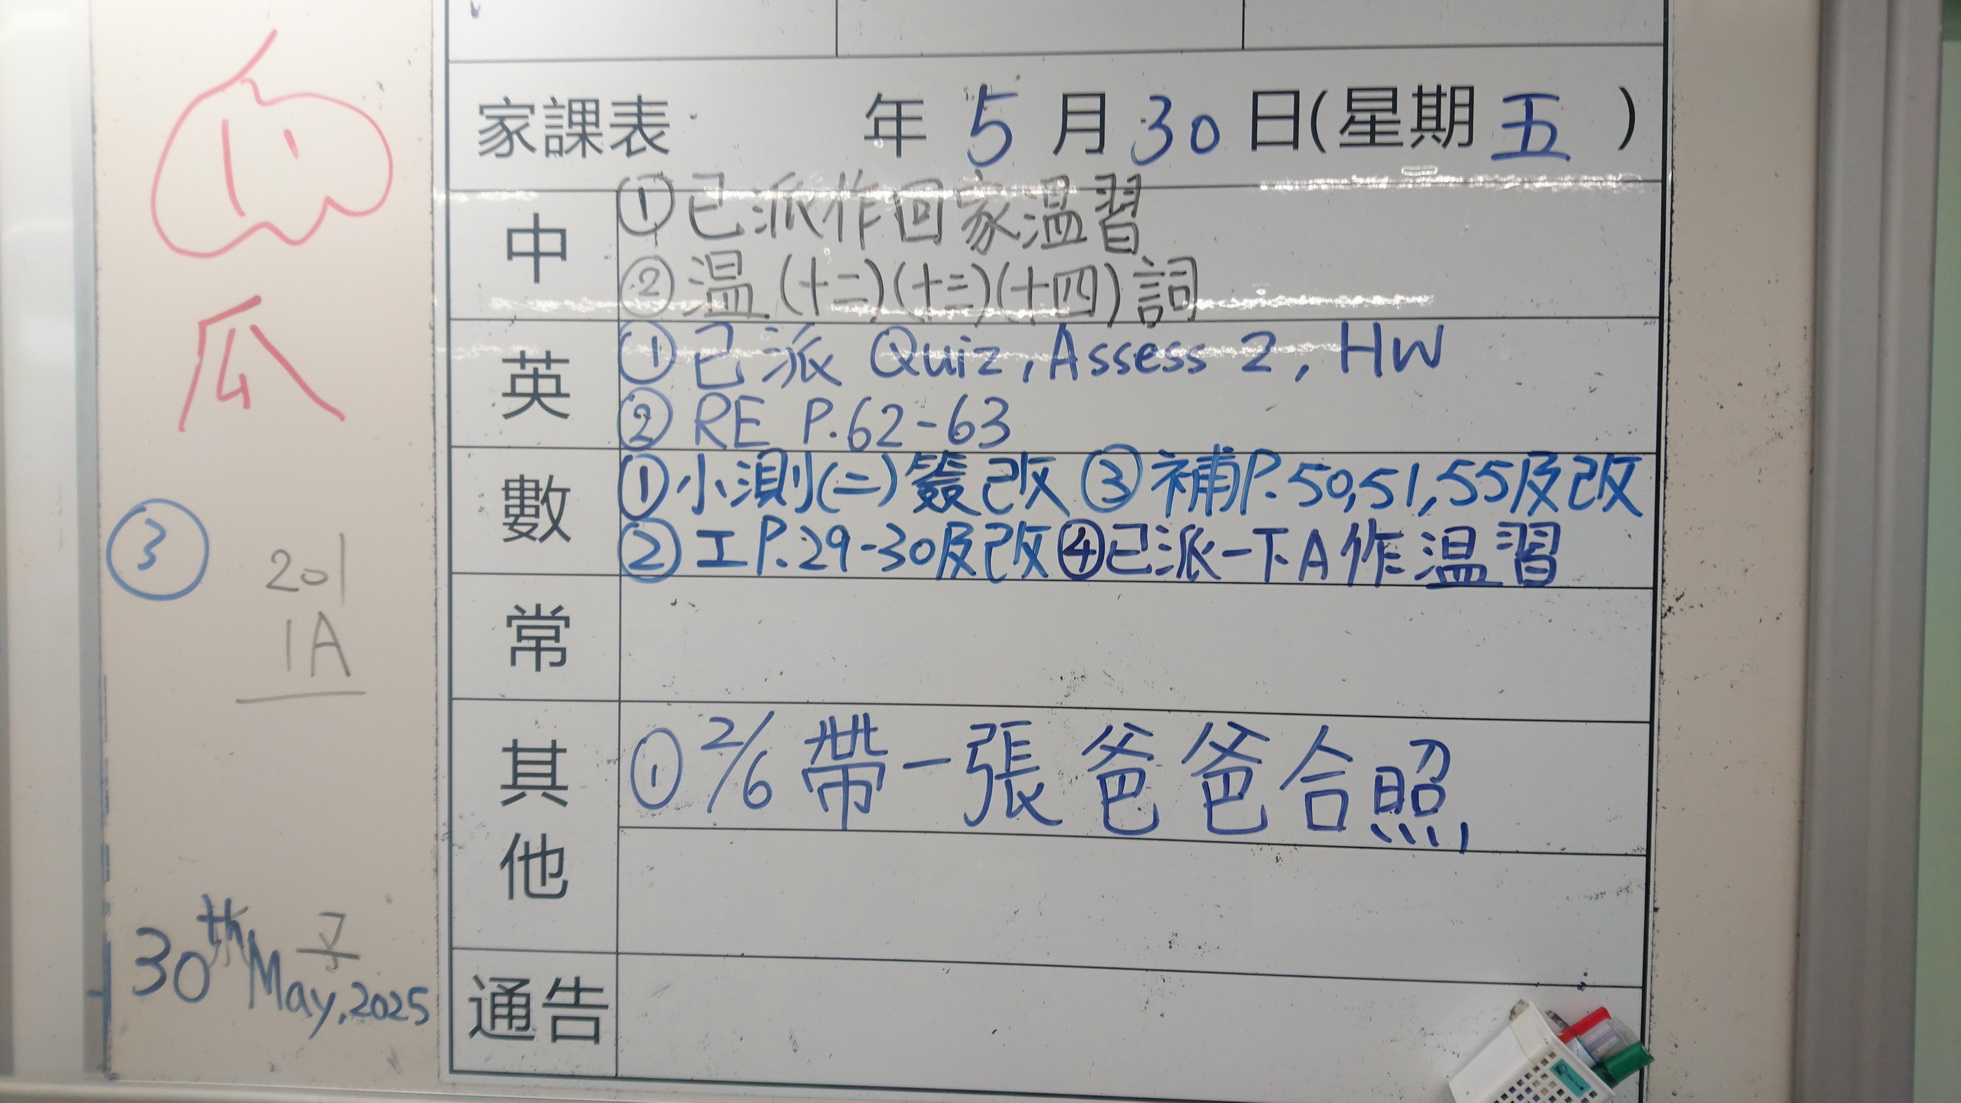 家課表 年 5 月 30 日(星期 五 )
中
①已派作回家温習
②温(十二)(十三)(十四)詞
英
①已派 Quiz, Assess 2, HW
② RE P.62-63
數
①小測(二)簽改 ③補P.50,51,55及改
②工P.29-30及改 ④已派一下A作温習
常
其他
① 2/6 帶一張爸爸合照
通告
瓜
③
201
1A
30th May, 2025